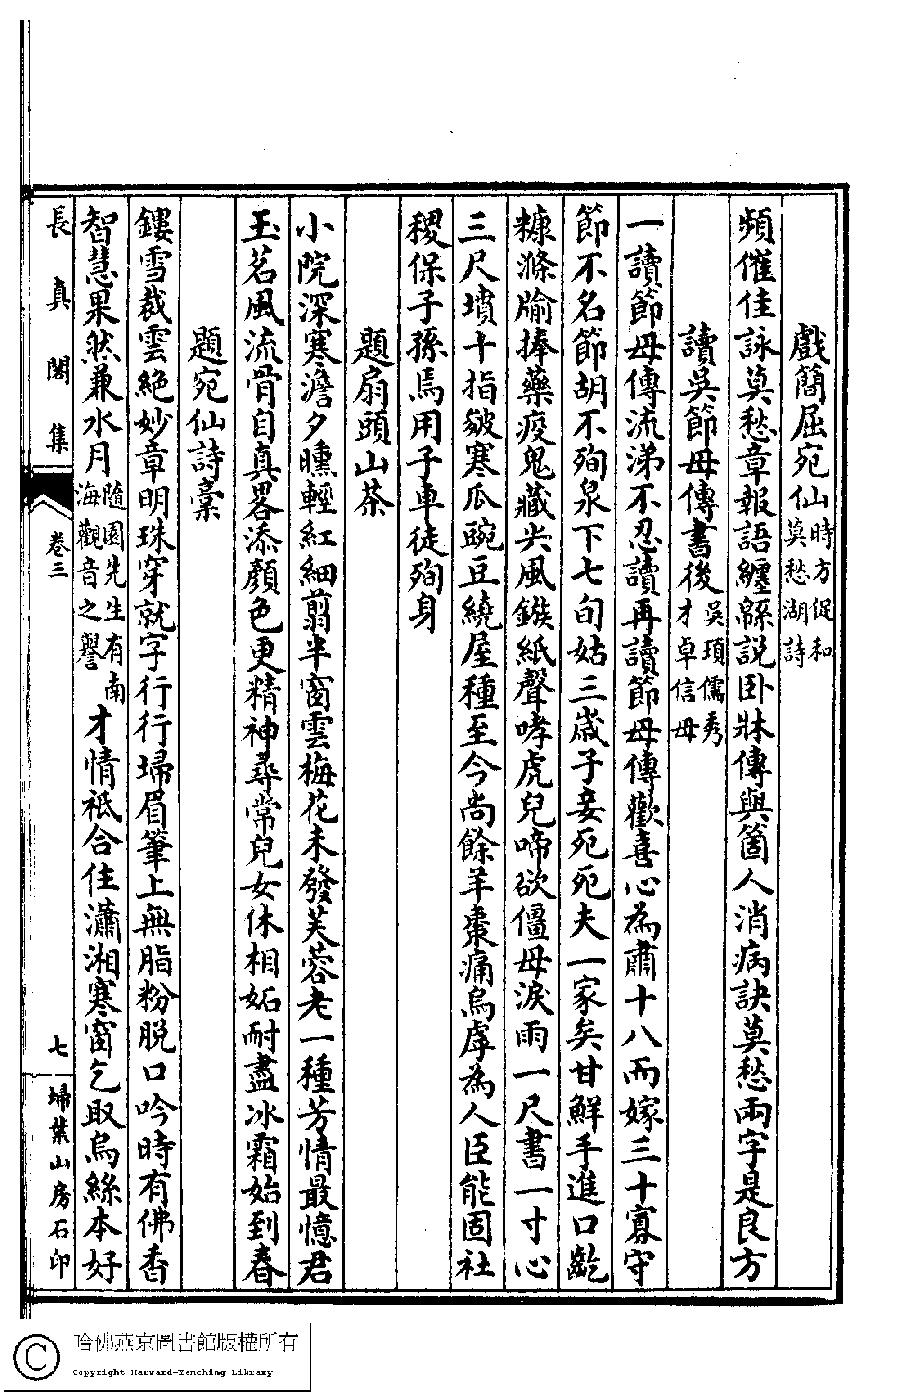 戲簡屈宛仙時方促和莫愁湖詩
頻催佳詠莫愁章報語纏緜説卧牀傳與箇人消病訣莫愁兩字是良方
讀吳節母傳書後吳頊儒秀才卓信母
一讀節母傳流涕不忍讀再讀節母傳歡喜心為肅十八而嫁三十寡守
節不名節胡不殉泉下七旬姑三歲子妾死死夫一家矣甘鮮手進口齕
糠滌牏捧藥疫鬼藏尖風鏃紙聲哮虎兒啼欲僵母淚雨一尺書一寸心
三尺墳十指皴寒瓜豌豆繞屋種至今尚餘羊棗痛烏虖為人臣能固社
稷保子孫焉用子車徒殉身
題扇頭山茶
小院深寒澹夕曛輕紅細翦半窗雲梅花未發芙蓉老一種芳情最憶君
玉茗風流骨自真畧添顏色更精神尋常兒女休相妬耐盡冰霜始到春
題宛仙詩稾
鏤雪裁雲絕妙章明珠穿就字行行埽眉筆上無脂粉脱口吟時有佛香
智慧果然兼水月隨園先生有南海觀音之譽才情祗合住瀟湘寒窗乞取烏絲本好
長真閣集
卷三
七
埽葉山房石印
哈佛燕京圖書館版權所有
Copyright Harvard-Yenching Library